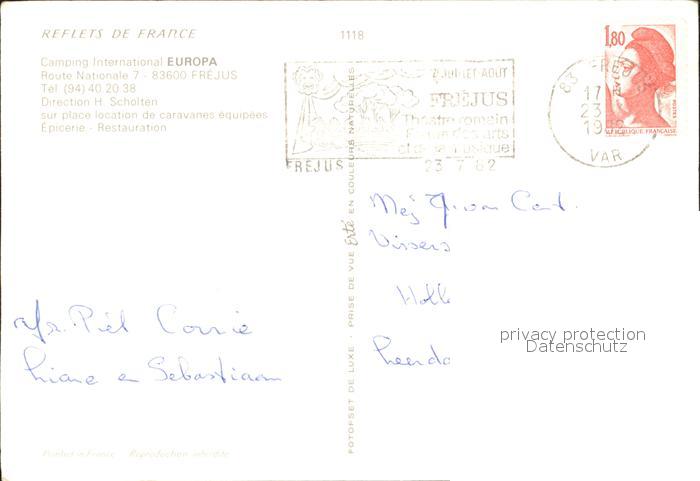 REFLETS DE FRANCE
1118
Camping International EUROPA
Route Nationale 7 - 83600 FRÉJUS
Tél (94) 40 20 38
Direction H. Scholten
sur place location de caravanes équipées
Épicerie - Restauration
JUILLET-AOUT
FRÉJUS
Théatre romain
des arts
et de la musique
FRÉJUS
23 7 82
1,80
POSTES
RÉPUBLIQUE FRANÇAISE
83 FREJUS
17
23
19
VAR
PHOTOFSET DE LUXE - PRISE DE VUE EN COULEURS NATURELLES
Mej
Vissers
Leende
Piet Corrie
Liane en Sebastiaan
privacy protection
Datenschutz
Printed in France Reproduction interdite